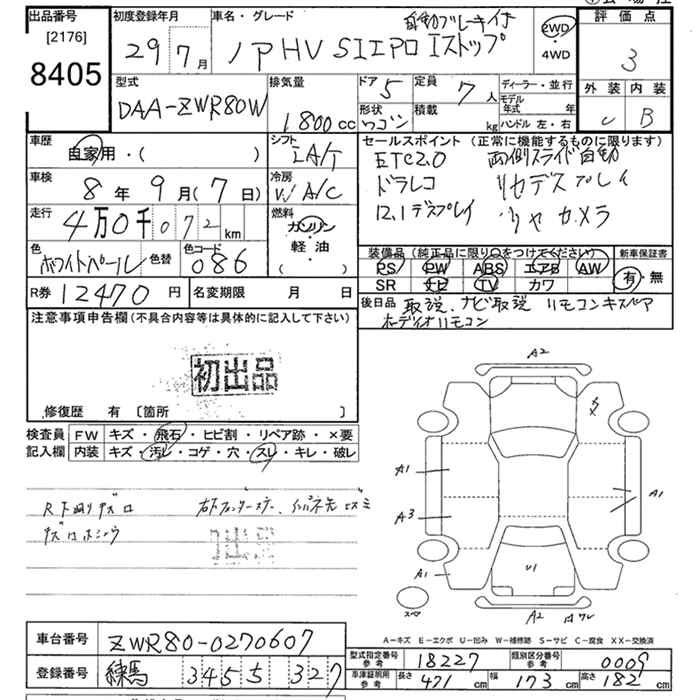 出品番号 [2176] 8405
初度登録年月 29年 7月
車名・グレード ノア HV SI Eプロ Iストップ 自動ブレーキ付
2WD ・ 4WD
評価点 3
型式 DAA-ZWR80W
排気量 1800cc
ドア 5 形状 ワゴン
定員 7人 積載 kg
ディーラー・並行
モデル年式 年
ハンドル 左・右
外装 内装 B
車歴 自家用・( )
シフト IA/T
車検 8年 9月 (7日)
冷房 W A/C
走行 4万0千072km
燃料 ガソリン 軽・油 ( )
色 ホワイトパール 色替
色コード 086
R券 12470円
名変期限 月 日
セールスポイント (正常に機能するものに限ります)
ETC2.0 両側スライド自動
ドラレコ リヤデスプレイ
12.1デスプレイ リヤカメラ
装備品(純正品に限り○をつけてください) 新車保証書
PS PW ABS エアB AW 有・無
SR ナビ TV カワ
後日品 取説、ナビ取説 リモコンキスペア
オーディオリモコン
注意事項申告欄(不具合内容等は具体的に記入して下さい)
初出品
修復歴 有 [箇所 ]
検査員記入欄
FW キズ・飛石・ヒビ割・リペア跡・×要
内装 キズ・汚レ・コゲ・穴・スレ・キレ・破レ
初出品
A2
A1 A1
A3
A1 U1
スペア A2
A-キズ E-エクボ U-凹み W-補修跡 S-サビ C-腐食 XX-交換済
車台番号 ZWR80-0270607
登録番号 練馬 3455 327
型式指定番号 参考 18227 類別区分番号 参考 0009
車庫証明用 参考 長さ 471cm 幅 173cm 高さ 182cm